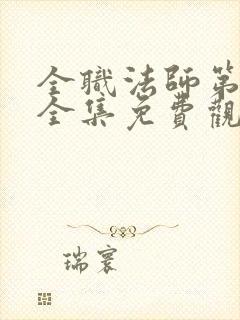 全職法師第
全集免費觀
瑞寰